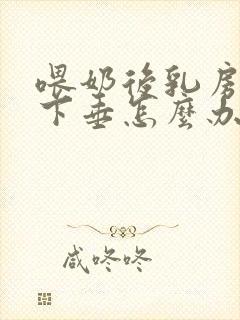 喂奶後乳房
下垂怎麼办
咸咚咚